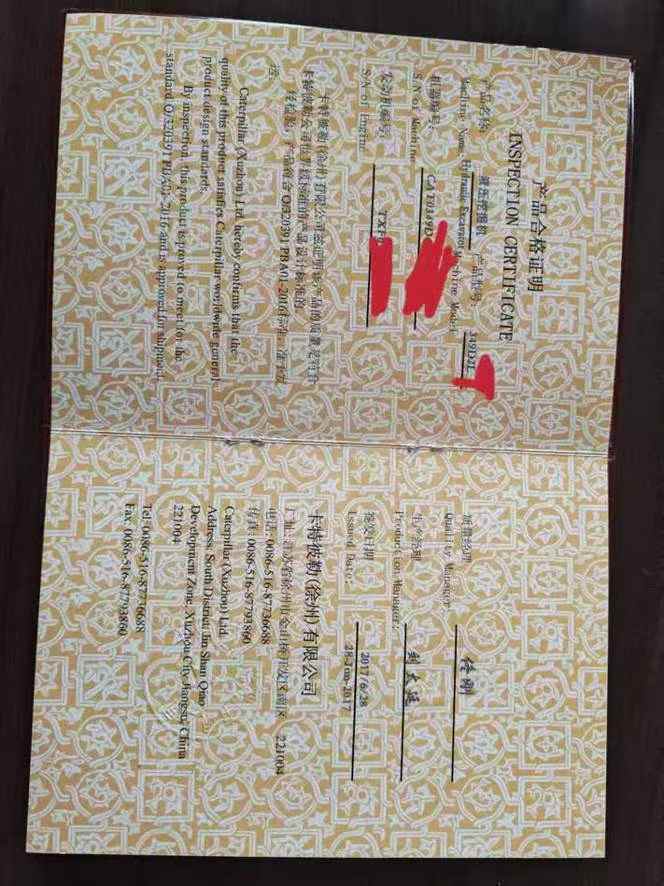 产品合格证明
INSPECTION CERTIFICATE
产品名称: 液压挖掘机 产品型号:
Machine Name: Hydraulic Excavator Machine Model: 349D2L
机器编号:
S/N of Machine: CAT0349D
发动机编号:
S/N of Engine: TXF
卡特彼勒(徐州)有限公司兹证明该产品的质量完全符合
卡特彼勒公司世界级标准的产品设计标准的。
经检验, 产品符合 Q/320391 PBA01-2016标准, 准予发
运。
Caterpillar (Xuzhou) Ltd. hereby confirms that the
quality of this product satisfies Caterpillar worldwide general
product design standards.
By inspection, this product is proved to meet for the
standard Q/320391 PBA01-2016 and is approved for shipment.
质量经理
Quality Manager:
生产经理
Production Manager:
签发日期 2017/6/28
Issued Date: 28-Jun-2017
卡特彼勒(徐州)有限公司
厂址: 江苏省徐州市金山桥开发区南区 221004
电话: 0086-516-87736688
传真: 0086-516-87793860
Caterpillar (Xuzhou) Ltd.
Address: South District, Jin Shan Qiao
Development Zone, Xuzhou City, Jiangsu, China
221004
Tel: 0086-516-87736688
Fax: 0086-516-87793860